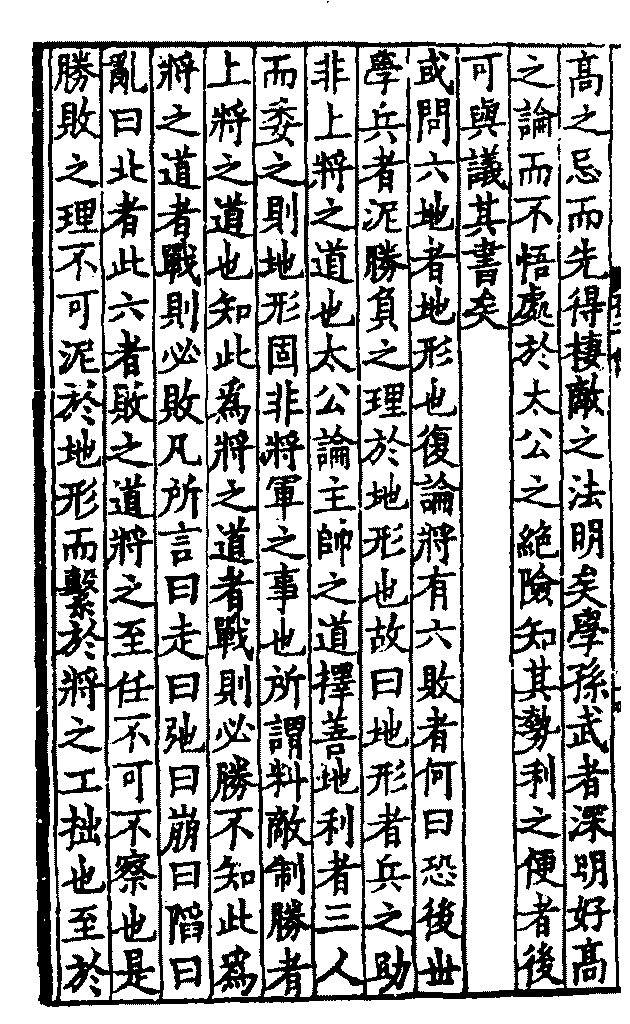 髙之忌而先得棲敵之法明矣學孫武者深明好髙
之論而不悟處於太公之絶險知其勢利之便者後
可與議其書矣
或問六地者地形也復論將有六敗者何曰恐後世
學兵者泥勝負之理於地形也故曰地形者兵之助
非上將之道也太公論主帥之道擇善地利者三人
而委之則地形固非將軍之事也所謂料敵制勝者
上將之道也知此爲將之道者戰則必勝不知此爲
將之道者戰則必敗凡所言曰走曰弛曰崩曰䧟曰
亂曰北者此六者敗之道將之至任不可不察也是
勝敗之理不可泥於地形而繫於將之工拙也至於